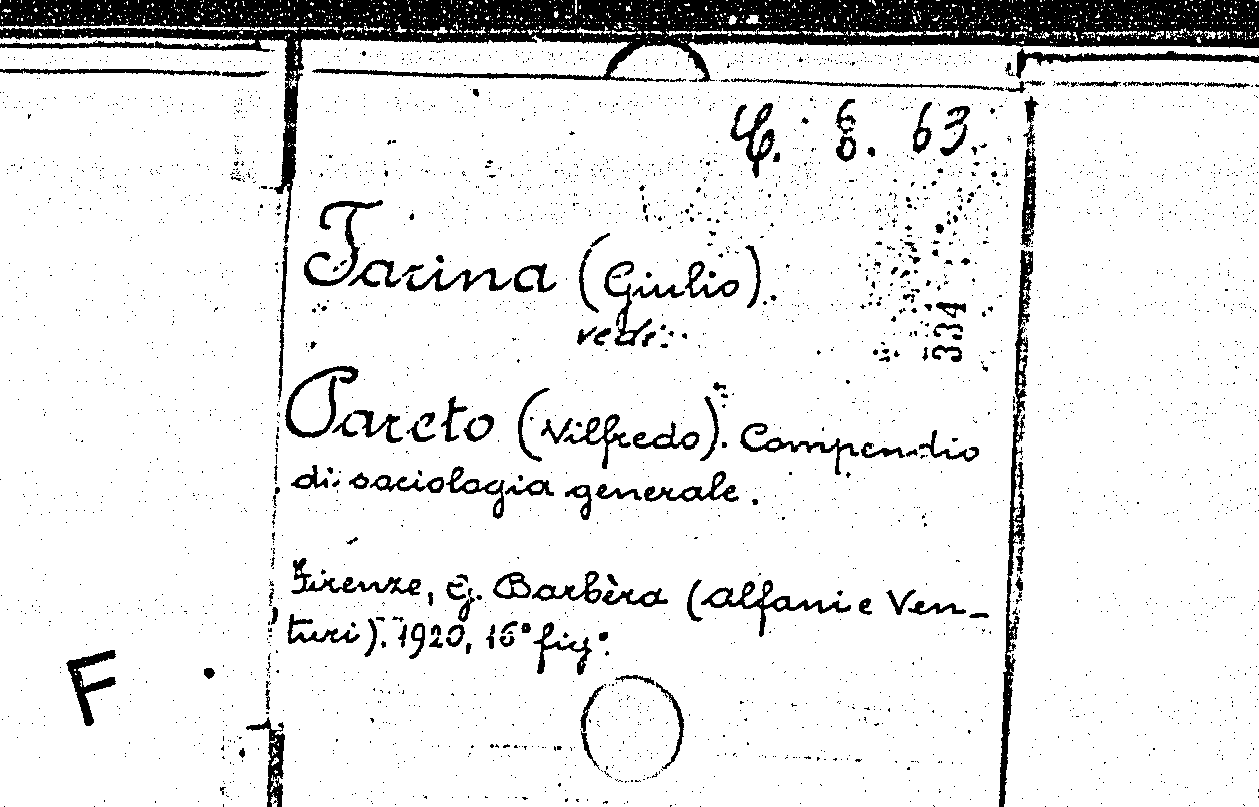 C. 8. 63.
Farina (Giulio).
vedi:
334
Pareto (Vilfredo). Compendio
di sociologia generale.
Firenze, G. Barbèra (Alfani e Ven-
turi). 1920, 16° fig°.
F